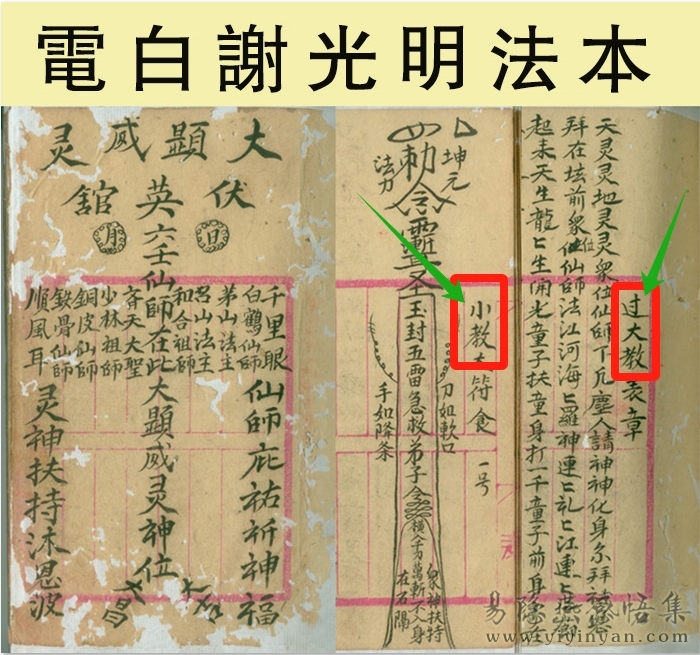 電白謝光明法本
大顯威灵
伏英館
日
月
千里眼
仙師庇祐祈神福
白鶴仙師
茅山法主
呂山法主
和合祖師
六壬仙師在此大顯威灵神位
斉天大聖
少林祖師
銅皮仙師
鉄骨仙師
順風耳
灵神扶持沐恩波
过大教表章
天灵灵地灵灵衆位仙師下凡塵人請神神化身尔拜
拜在坛前衆位仙師法江河海匕羅神連匕礼匕江連匕
起来天生龍匕生開光童子扶童身打一千童子前身
小教 符食 一号
坤元
法力
勅令
玉封五雷急救弟子令
刀如軟口
手如降条
萬斬不入身
衆神扶持
在石陽
www.yiyinyan.com